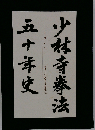 少林寺拳法
五十年史